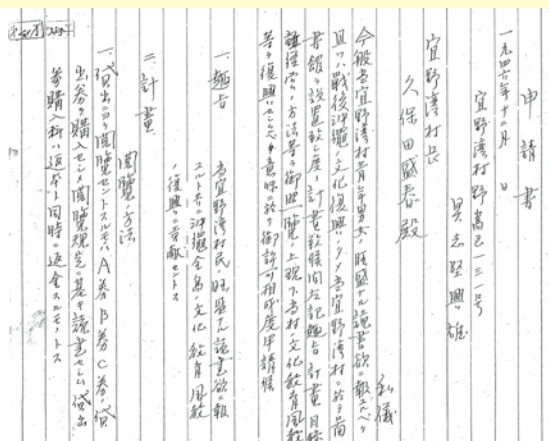 申請書
一九四六年十二月 日
宜野湾村野嵩巴一三一号
宜野湾村長
久保田盛春殿
私儀
今般当宜野湾村青年男女ノ旺盛ナル読書欲ニ報ユベク
且ツハ戦後沖縄ノ文化復興ノタメ当宜野湾村ニ於テ
書館ヲ設置致シ度ク計画致候間左記趣旨計画目
経営ノ方法等ヲ御照覧ノ上現下当村ノ文化教育風教
等ヲ復興セシムル意味ニ於テ御許可相成度申請候
一、趣旨 当宜野湾村民ノ旺盛ナル読書欲ニ報
ユルト共ニ沖縄全島ノ文化教育風教
ノ復興ニ貢献セントス
二、計画
閲覧ノ方法
一、貸出ニヨリ閲覧セントスルモノハA券B券C券ノ貸
出券ヲ購入セシメ閲覧規定ニ基キ読書セシム貸出
券購入料ハ返本ト同時ニ返金スルモノトス